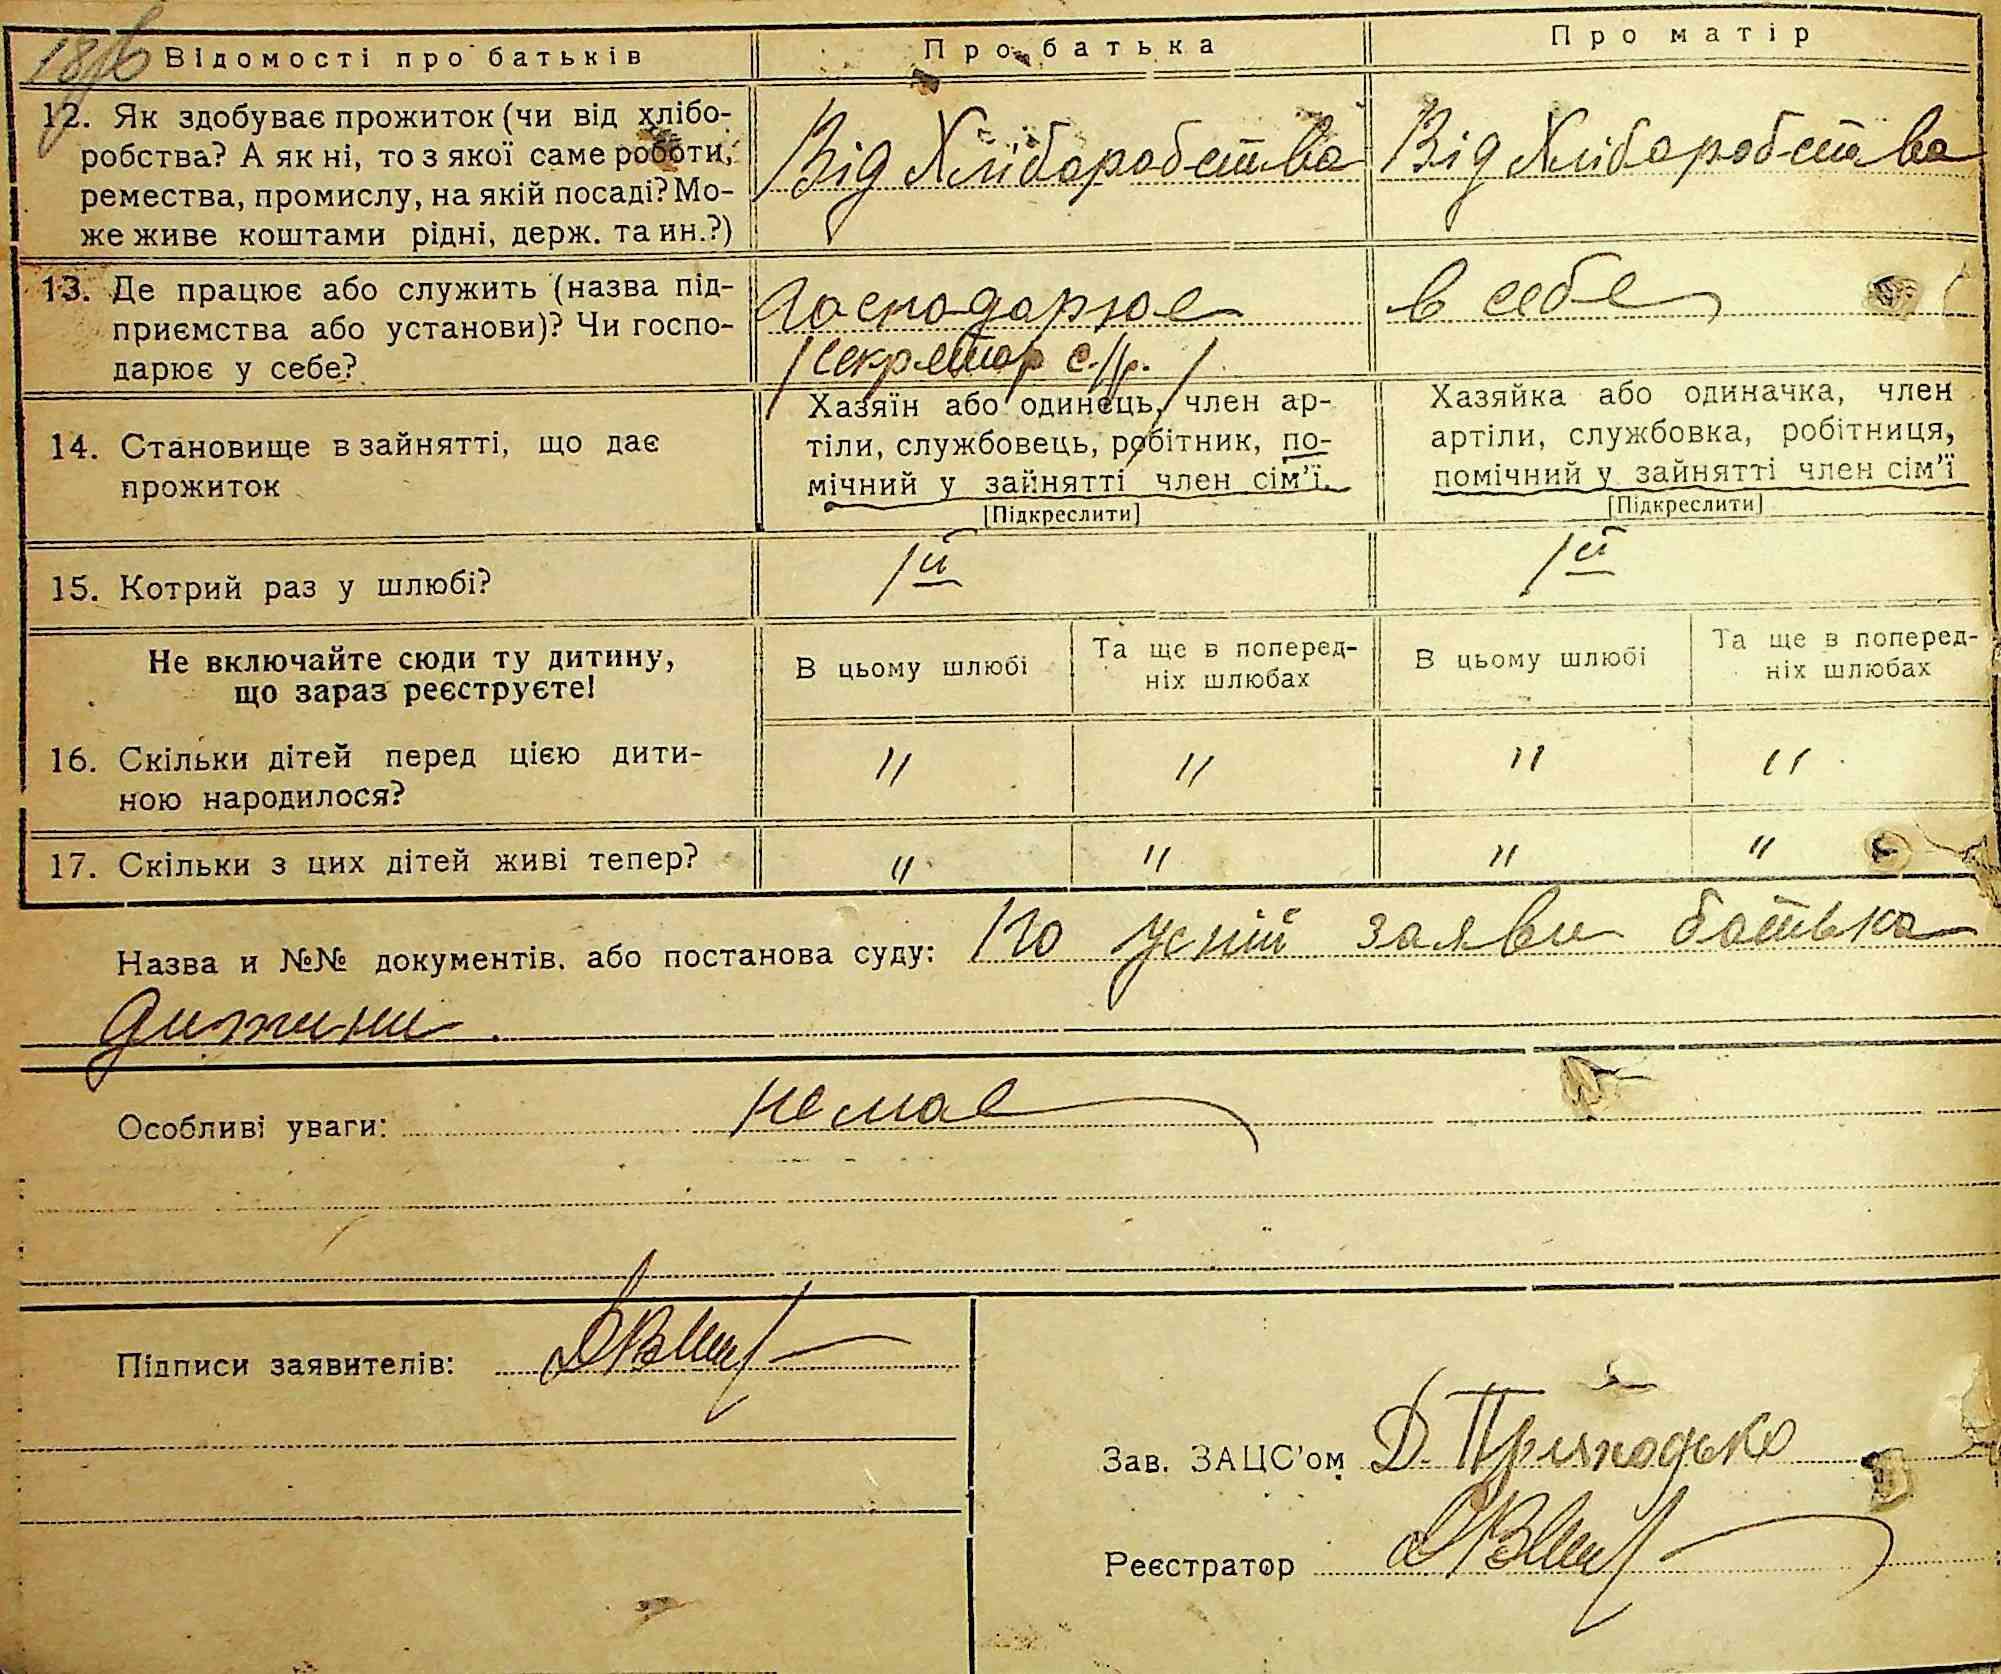 Відомості про батьків
Про батька
Про матір
12. Як здобуває прожиток (чи від хлібо-
робства? А як ні, то з якої саме роботи,
ремества, промислу, на якій посаді? Мо-
же живе коштами рідні, держ. та ин.?)
Від Хліборобства
Від Хліборобства
13. Де працює або служить (назва під-
приємства або установи)? Чи госпо-
дарює у себе?
Господарює
в себе
/секретар с./р. /
14. Становище в зайнятті, що дає
прожиток
Хазяїн або одинець, член ар-
тіли, службовець, робітник, по-
мічний у зайнятті член сім'ї.
[Підкреслити]
Хазяйка або одиначка, член
артіли, службовка, робітниця,
помічний у зайнятті член сім'ї
[Підкреслити]
15. Котрий раз у шлюбі?
1й
1й
Не включайте сюди ту дитину,
що зараз реєструєте!
В цьому шлюбі
Та ще в поперед-
ніх шлюбах
В цьому шлюбі
Та ще в поперед-
ніх шлюбах
16. Скільки дітей перед цією дити-
ною народилося?
" " " "
17. Скільки з цих дітей живі тепер?
" " " "
Назва и №№ документів, або постанова суду: По усній заяви батька
дитини.
Особливі уваги: немає
Підписи заявителів:
Зав. ЗАЦС'ом Д. Приходько
Реєстратор